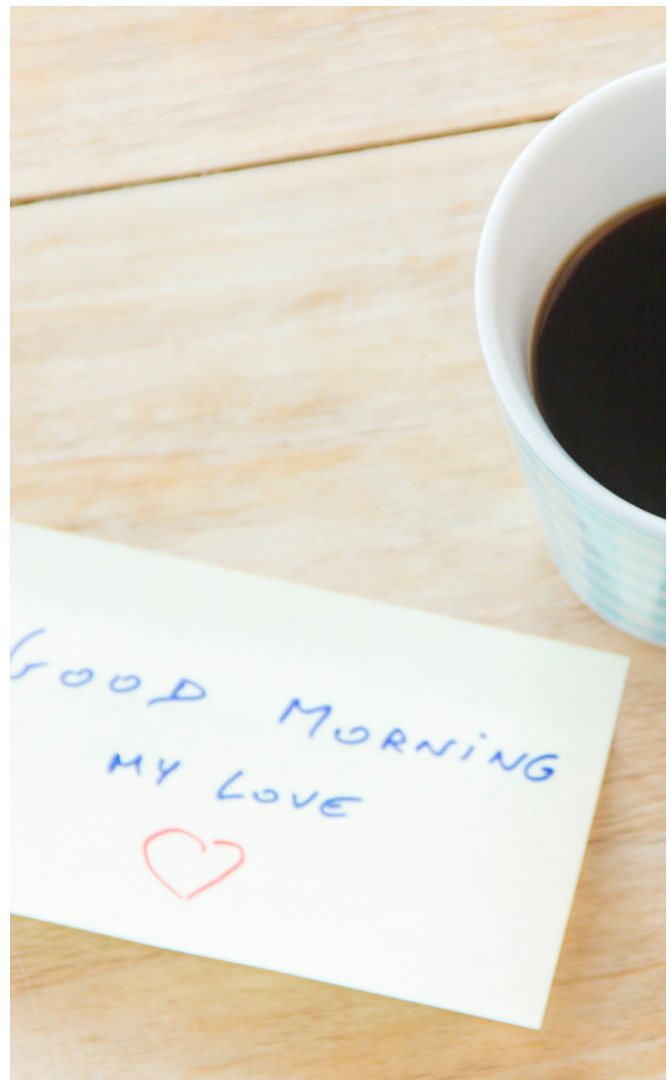 GOOD MORNING
MY LOVE